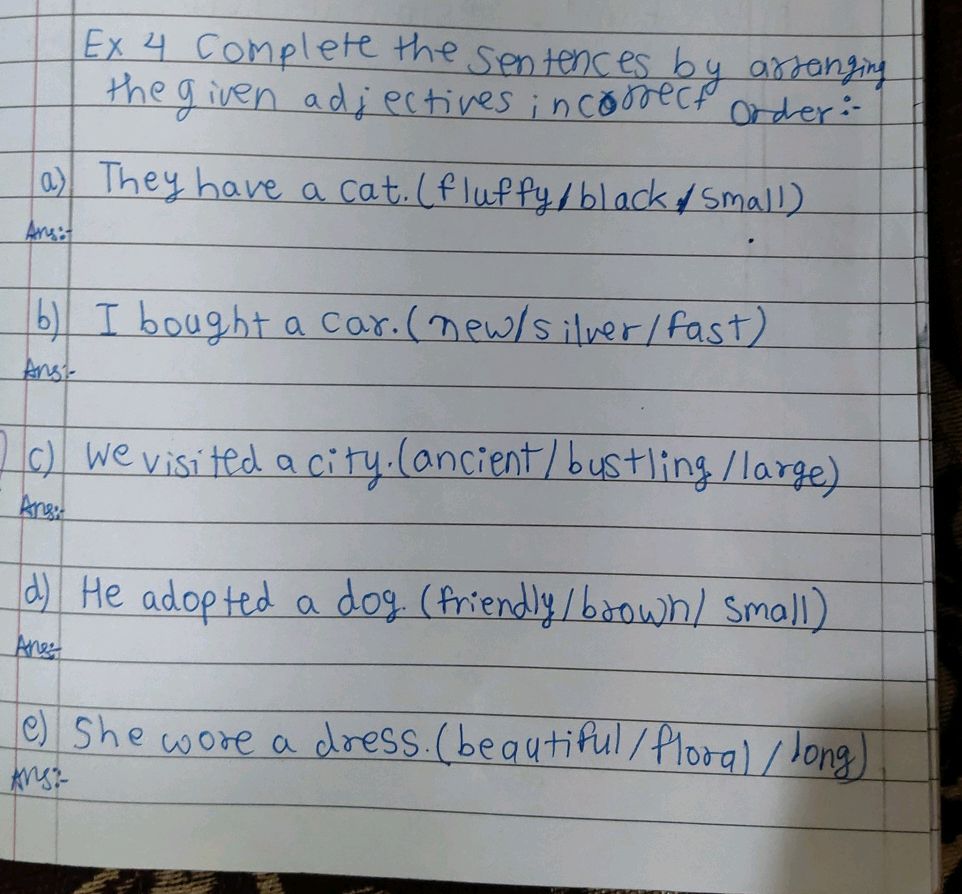 Ex 4 Complete the sentences by arranging
the given adjectives in correct order:-
a) They have a cat. (fluffy/black/small)
Ans:-
b) I bought a car. (new/silver/fast)
Ans:-
c) We visited a city. (ancient/bustling/large)
Ans:-
d) He adopted a dog. (friendly/brown/small)
Ans:-
e) She wore a dress. (beautiful/floral/long)
Ans:-